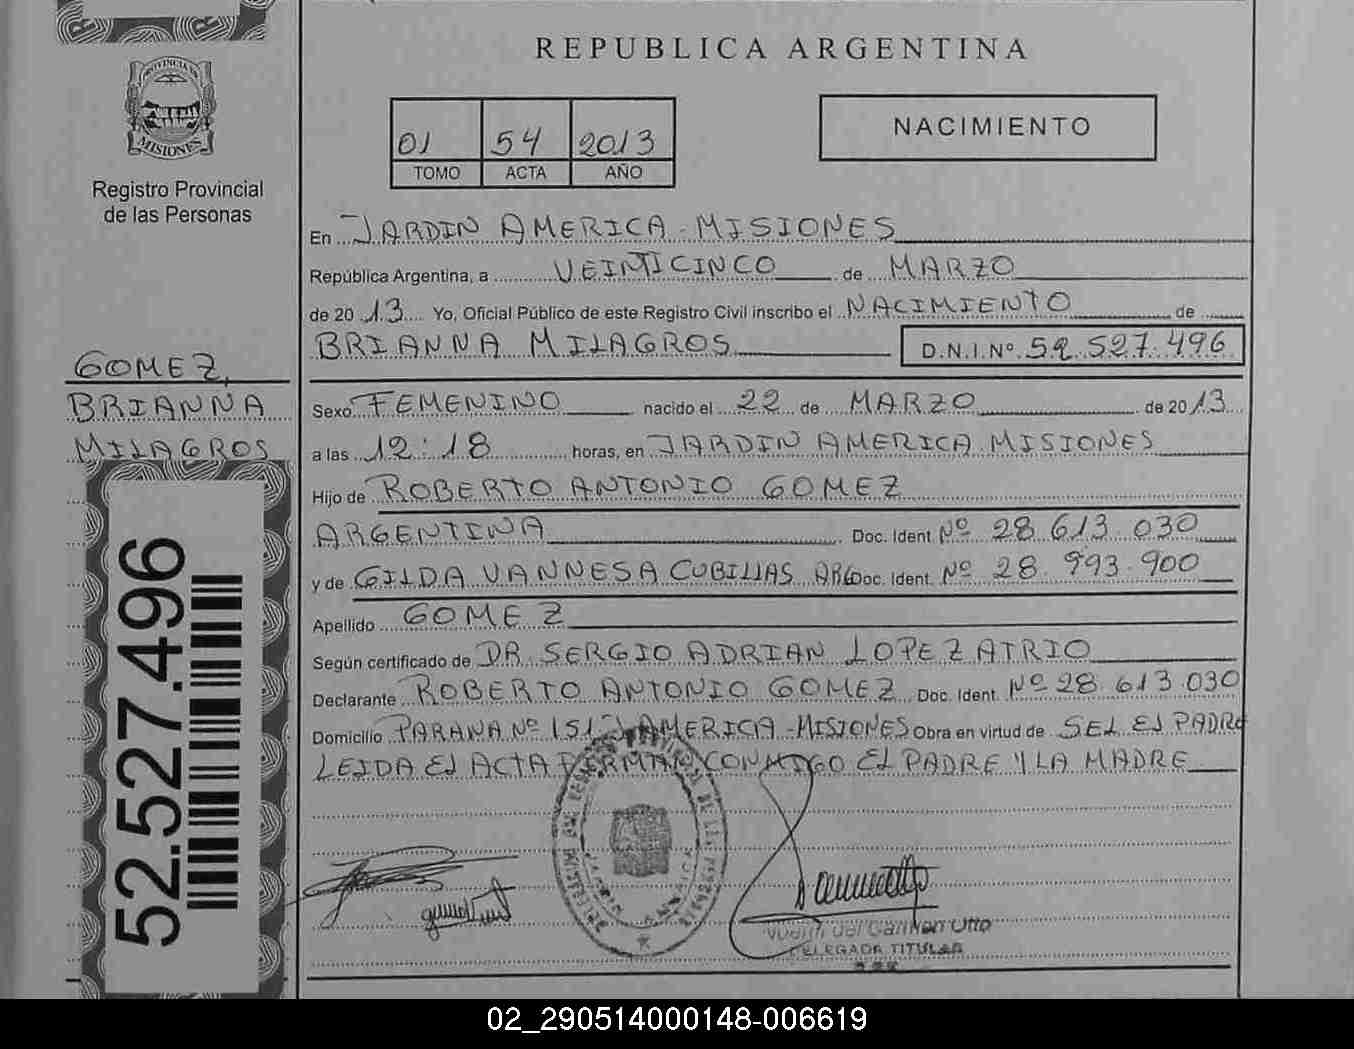 REPUBLICA ARGENTINA
PROVINCIA DE
MISIONES
Registro Provincial
de las Personas
01 54 2013
TOMO ACTA AÑO
NACIMIENTO
En JARDIN AMERICA - MISIONES
República Argentina, a VEINTICINCO de MARZO
de 2013 Yo, Oficial Público de este Registro Civil inscribo el NACIMIENTO de
BRIANNA MILAGROS D.N.I.Nº 52.527.496
GOMEZ,
BRIANNA
MILAGROS
Sexo FEMENINO nacido el 22 de MARZO de 2013
a las 12:18 horas, en JARDIN AMERICA MISIONES
Hijo de ROBERTO ANTONIO GOMEZ
ARGENTINA Doc. Ident Nº 28.613.030
y de GILDA VANNESA CUBILLAS ARG Doc. Ident. Nº 28.993.900
Apellido GOMEZ
Según certificado de DR. SERGIO ADRIAN LOPEZ ATRIO
Declarante ROBERTO ANTONIO GOMEZ Doc. Ident. Nº 28.613.030
Domicilio PARANA Nº 151 J. AMERICA - MISIONES Obra en virtud de SEL EL PADRE
LEIDA EL ACTA FIRMAN CONMIGO EL PADRE Y LA MADRE
52.527.496
del Carmen Otto
DELEGADA TITULAR
02_290514000148-006619